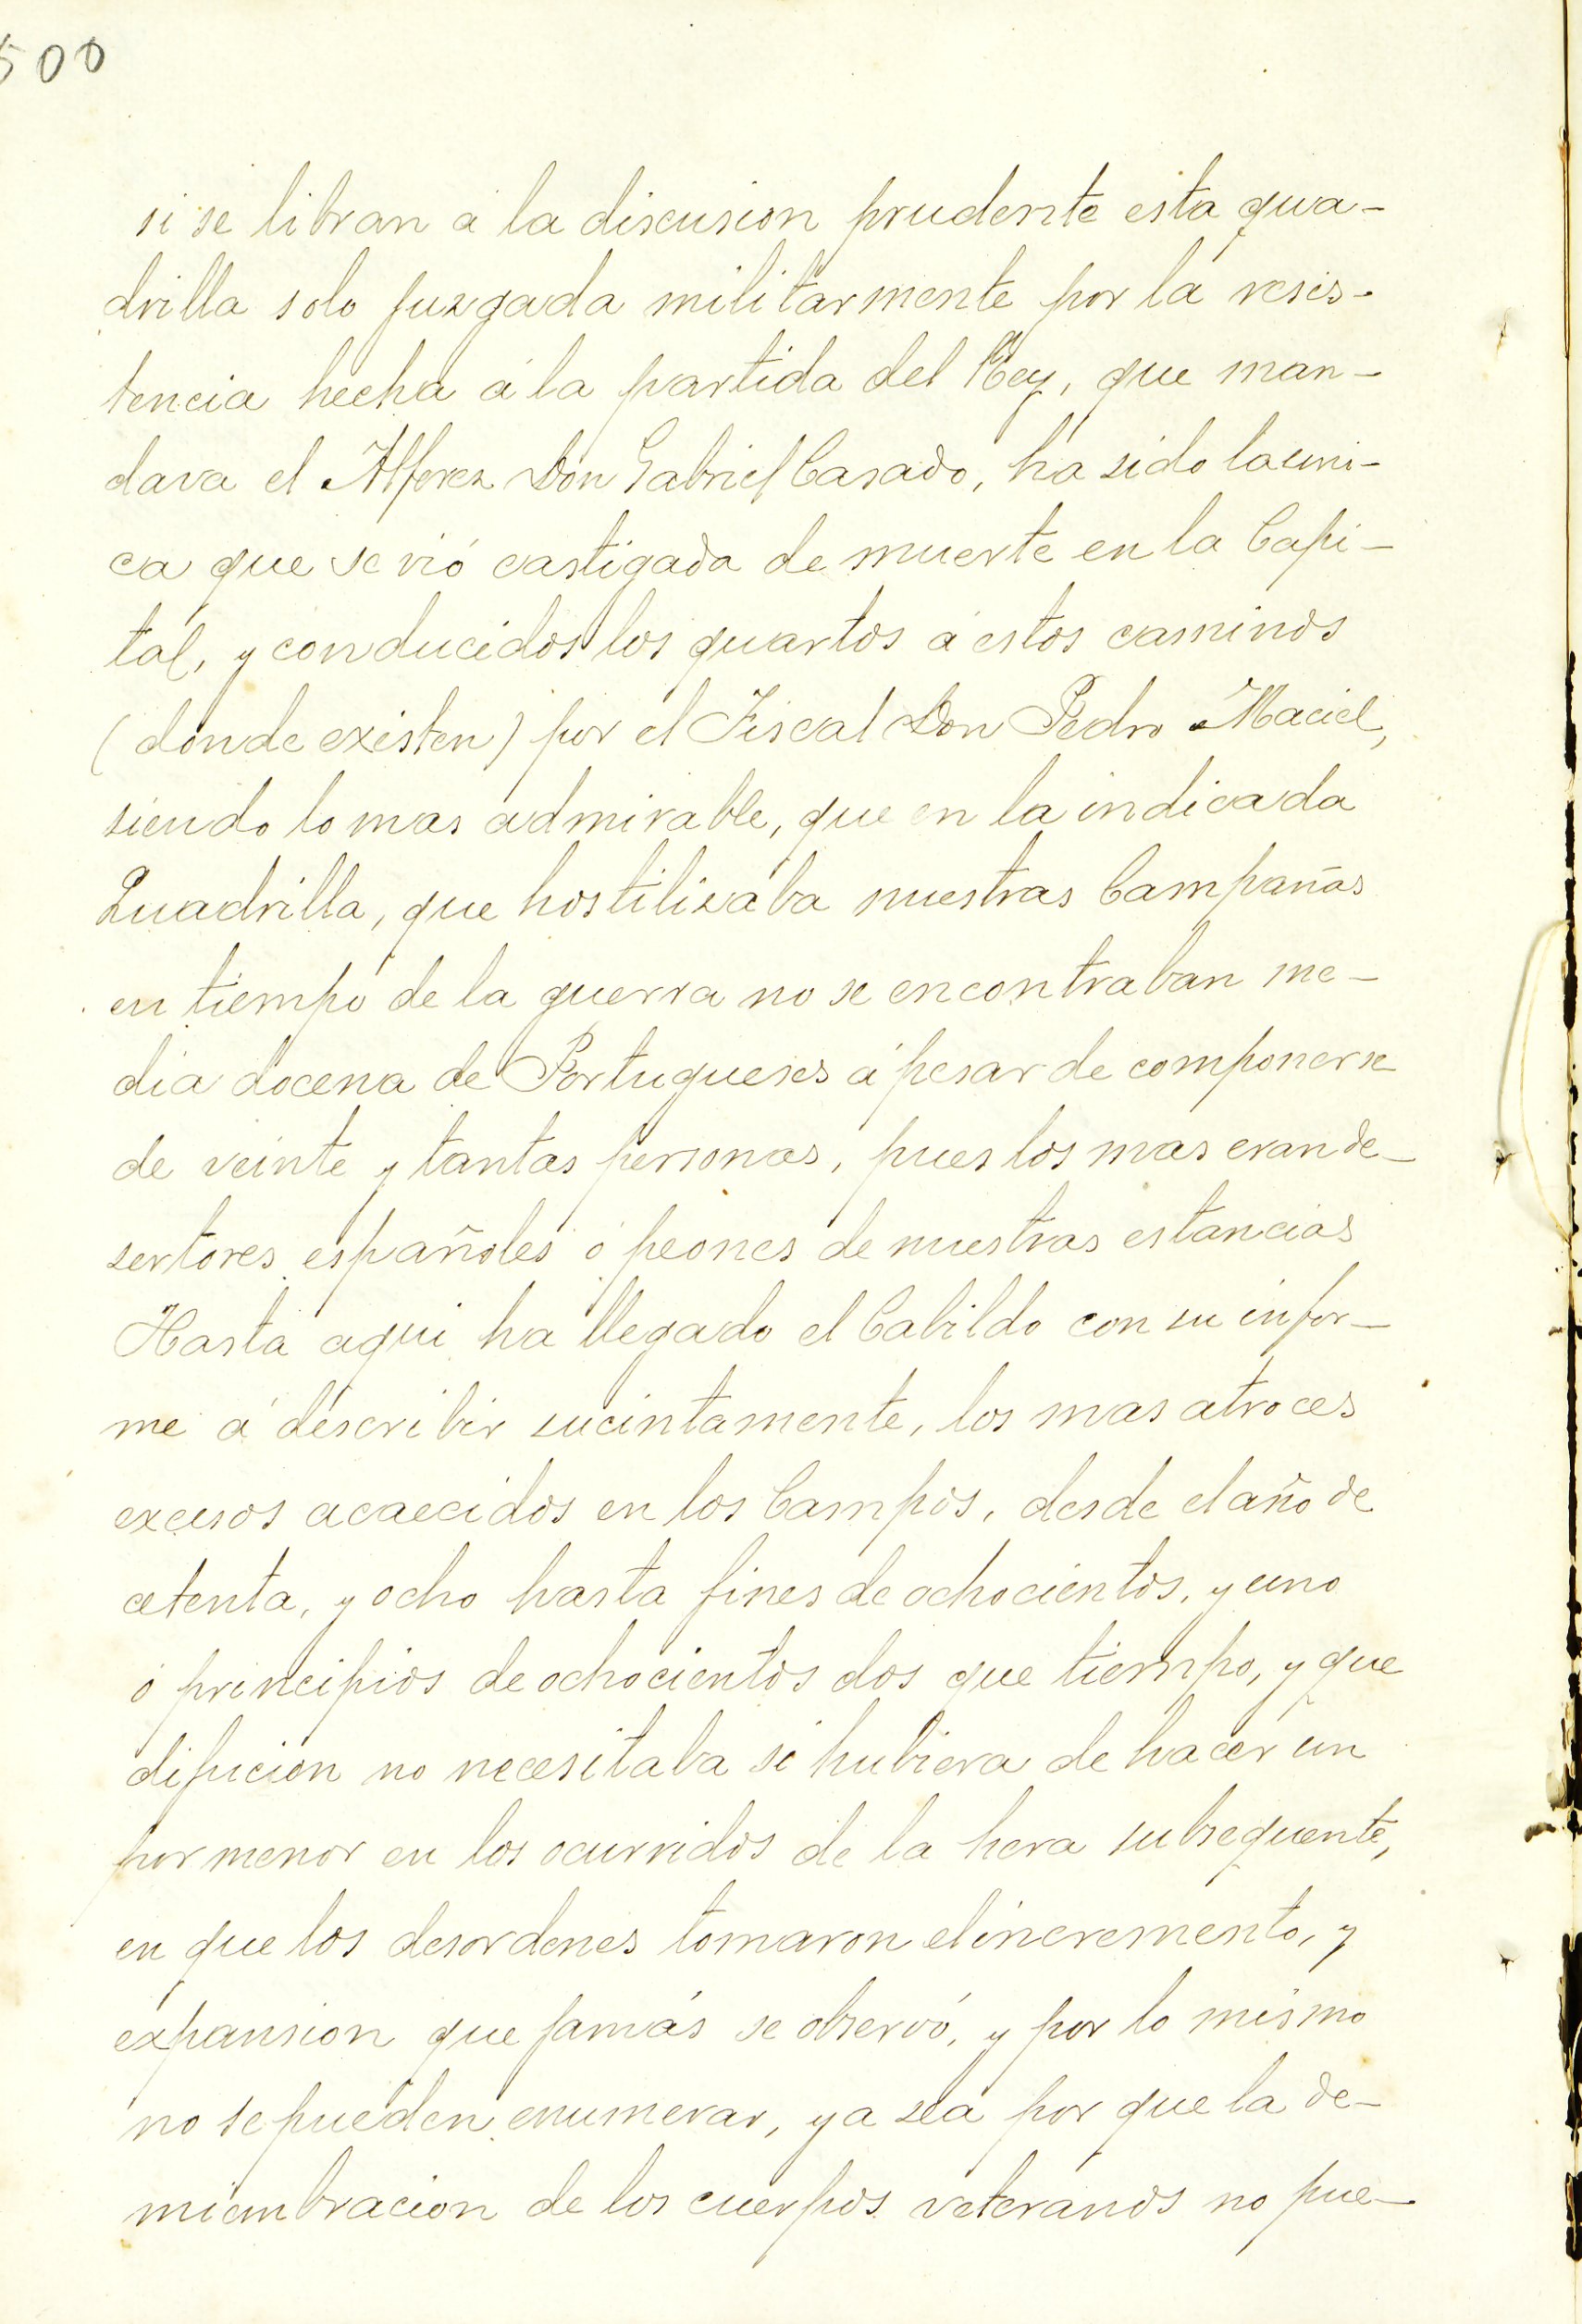 500
si se libran a la discusion prudente esta qua-
drilla solo juzgada militarmente por la resis-
tencia hecha á la partida del Rey, que man-
dava el Alferez Don Gabriel Casado, ha sido la uni-
ca que se vió castigada de muerte en la Capi-
tal, y conducidos los quartos á estos caminos
(donde existen) por el Fiscal Don Pedro Maciel,
siendo lo mas admirable, que en la indicada
Quadrilla, que hostilizaba nuestras Campañas
en tiempo de la guerra no se encontraban me-
dia docena de Portugueses á pesar de componerse
de veinte y tantas personas, pues los mas eran de-
sertores españoles ó peones de nuestras estancias
Hasta aqui ha llegado el Cabildo con su infor-
me á describir sucintamente, los mas atroces
excesos acaecidos en los Campos, desde el año de
cetenta, y ocho hasta fines de ochocientos, y uno
ó principios de ochocientos dos que tiempo, y que
difucion no necesitaba si hubiera de hacer un
por menor en los ocurridos de la hera subsequente,
en que los desordenes tomaron el incremento, y
expansion que jamás se observó, y por lo mismo
no se pueden enumerar, ya sea por que la de-
miembracion de los cuerpos veteranos no pue-